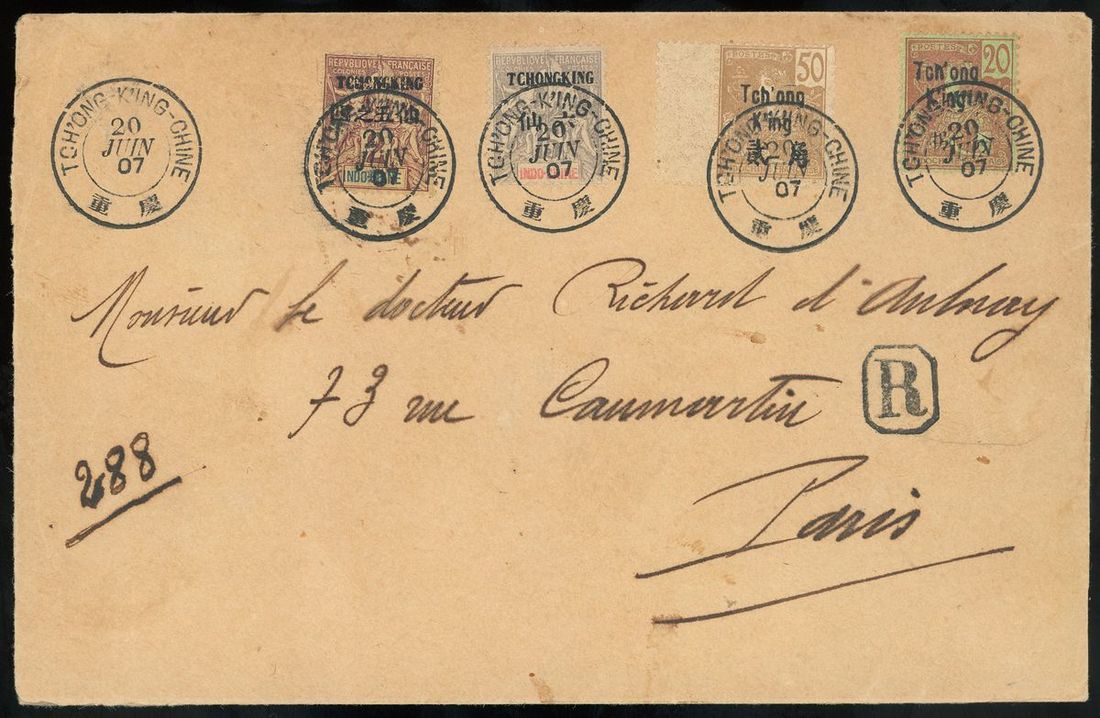 TCH'ONG-K'ING-CHINE
20
JUIN
07
重慶
REPVBLIQVE FRANÇAISE
COLONIES POSTES
TCHONGKING
之五仙
INDO-CHINE
TCH'ONG-K'ING-CHINE
20
JUIN
07
重慶
REPVBLIQVE FRANÇAISE
TCHONGKING
仙六
INDO-CHINE
TCH'ONG-K'ING-CHINE
20
JUIN
07
重慶
POSTES 50
Tch'ong
K'ing
貳角
TCH'ONG-K'ING-CHINE
20
JUIN
07
重慶
POSTES 20
Tch'ong
K'ing
TCH'ONG-K'ING-CHINE
20
JUIN
07
重慶
Monsieur le docteur Richard d'Aulnay
73 rue Caumartin
R
288
Paris